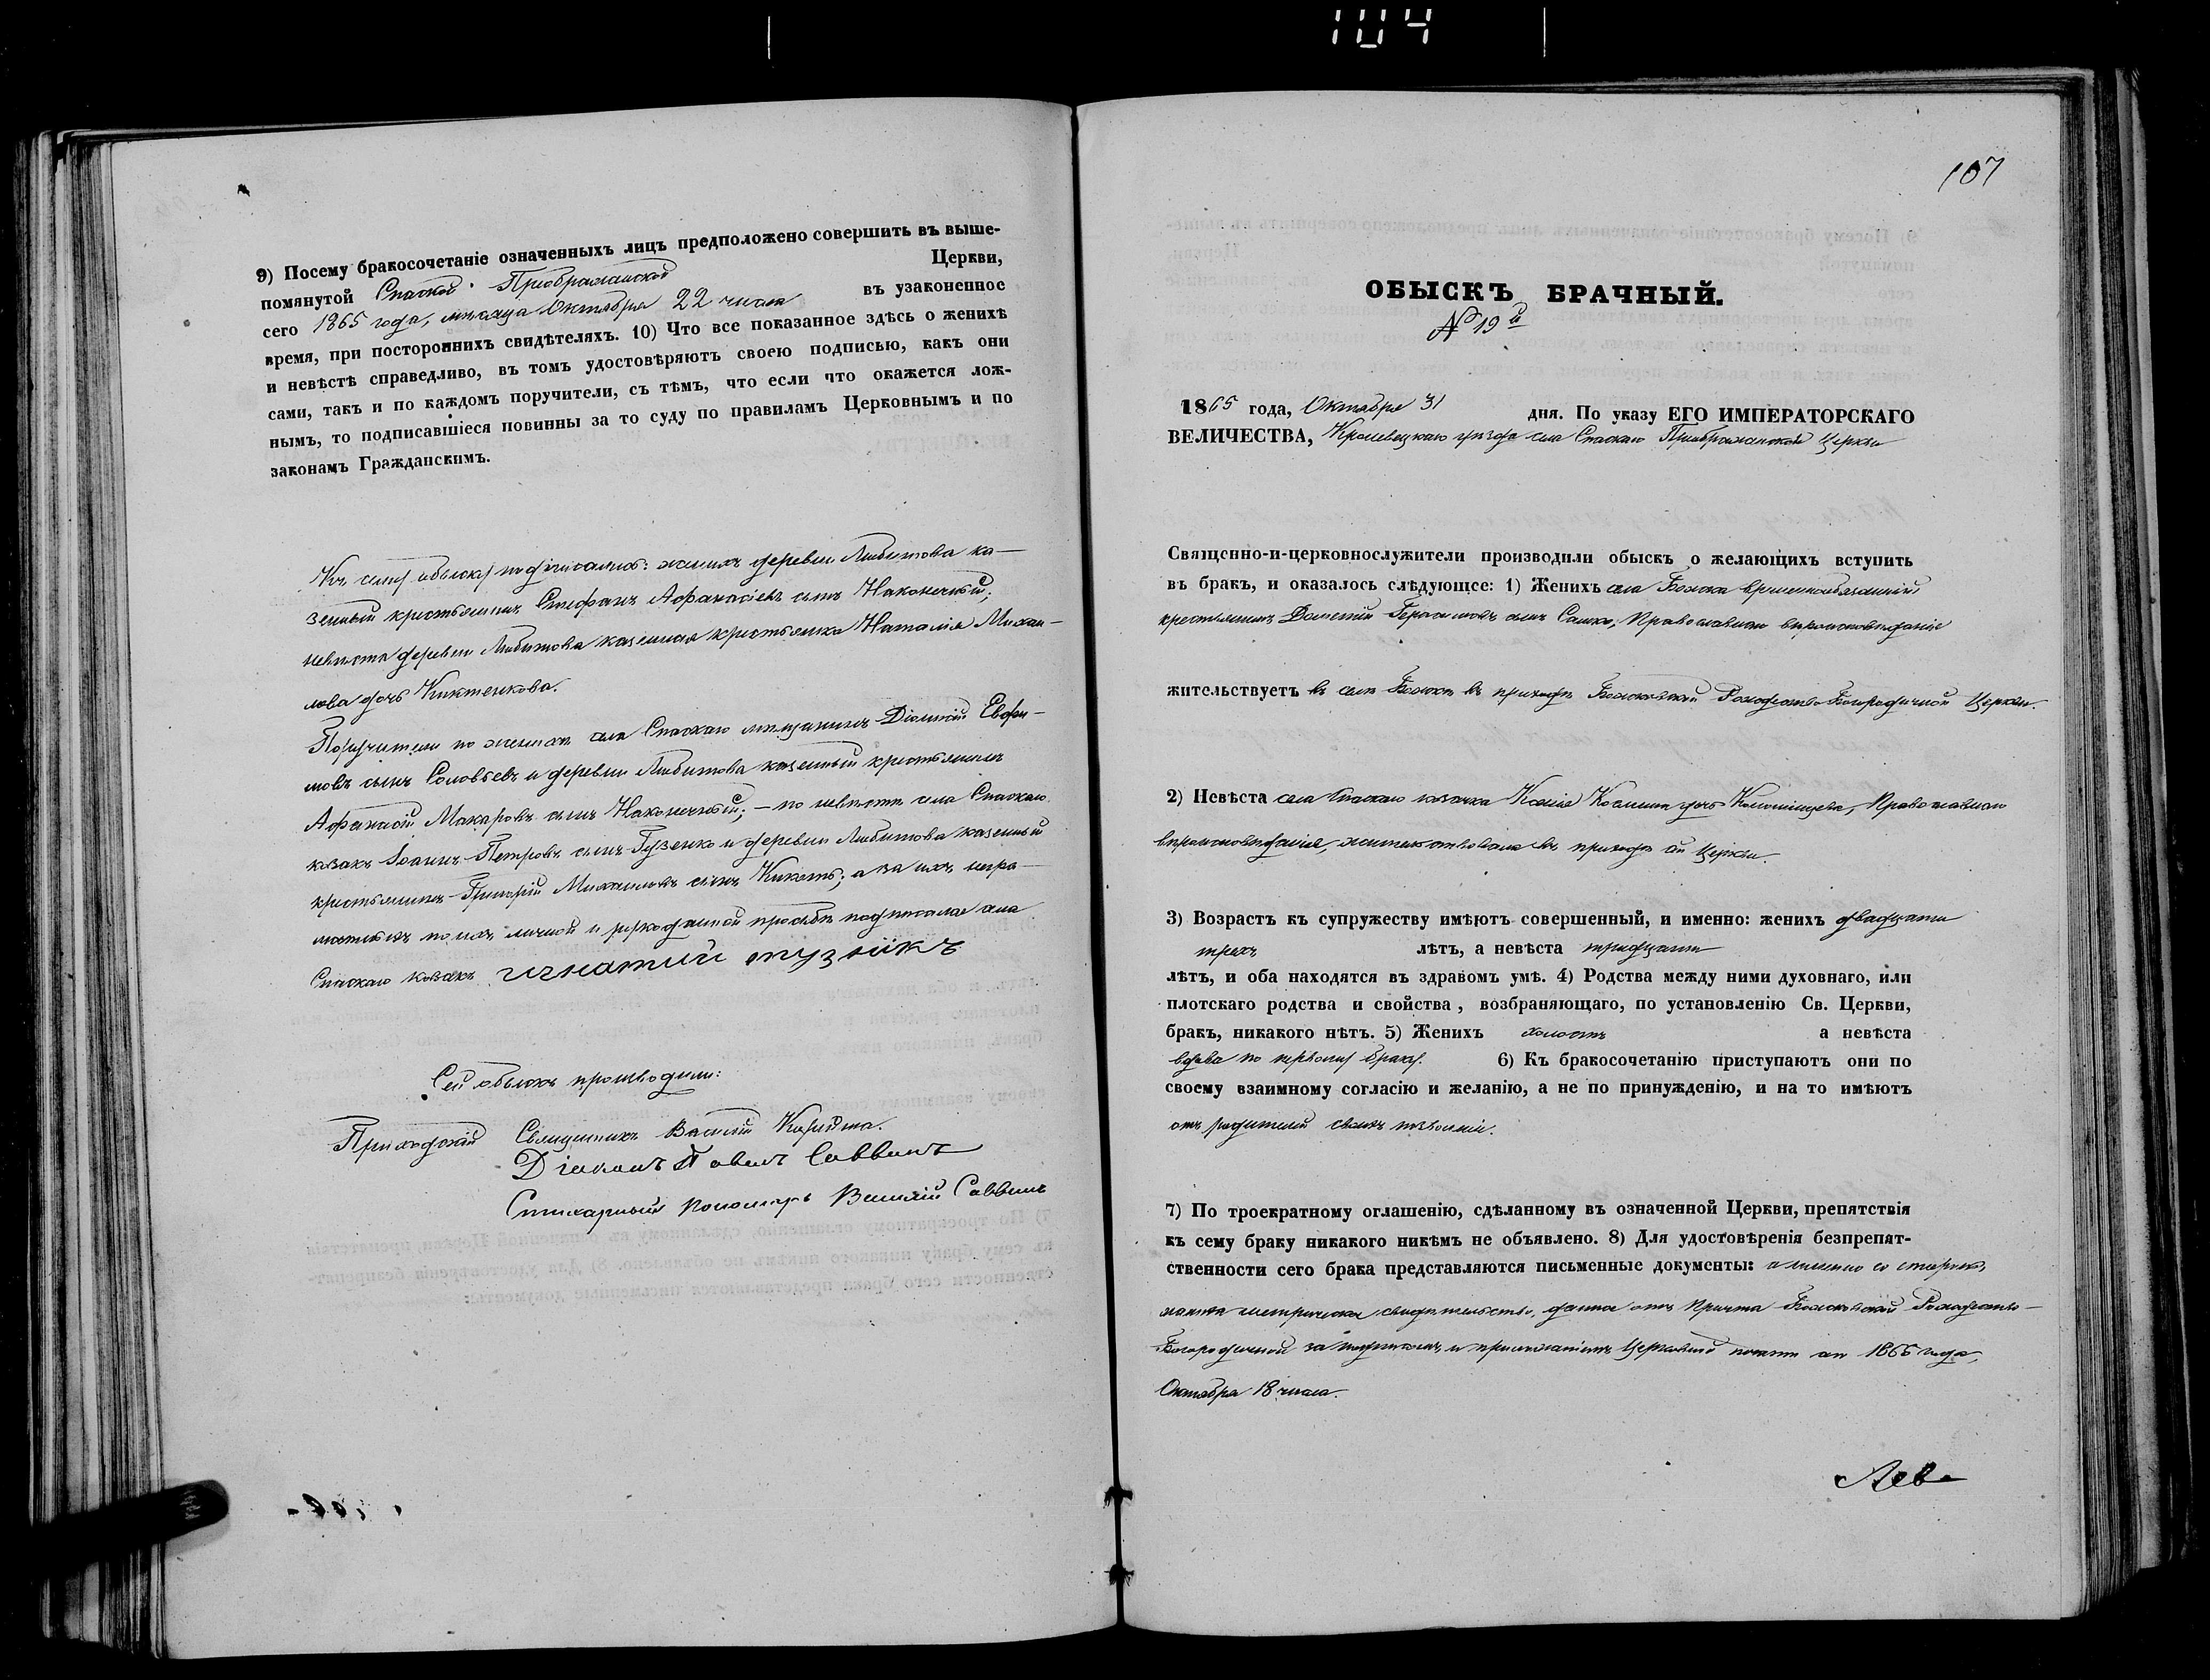 104
9) Посему бракосочетаніе означенныхъ лицъ предположено совершить въ выше-
помянутой Спаской Преображенской Церкви,
сего 1865 года, мѣсяца Октября 22 числа въ узаконенное
время, при постороннихъ свидѣтеляхъ. 10) Что все показанное здѣсь о женихѣ
и невѣстѣ справедливо, въ томъ удостовѣряютъ своею подписью, какъ они
сами, такъ и по каждомъ поручители, съ тѣмъ, что если что окажется лож-
нымъ, то подписавшіеся повинны за то суду по правиламъ Церковнымъ и по
законамъ Гражданскимъ.
Къ сему обыску подписались: женихъ деревни Любитова ка-
зенный крестьянинъ Стефанъ Афанасіевъ сынъ Наконечный;
невѣста деревни Любитова казенная крестьянка Наталія Михаи-
лова дочь Киктенкова.
Поручители по женихѣ села Спаскаго мѣщанинъ Діомидій Евфи-
мовъ сынъ Соловьевъ и деревни Любитова казенный крестьянинъ
Афанасій Макаровъ сынъ Наконечный; – по невѣстѣ села Спаскаго
козакъ Іоаннъ Петровъ сынъ Гузенко и деревни Любитова казенный
крестьянинъ Григорій Михаиловъ сынъ Кикоть; а за ихъ негра-
мотныхъ по ихъ личной и рукоданной просьбѣ подписался села
Спаскаго козакъ игнатий пузыікъ
Сей обыскъ производили:
Приходскій Священникъ Василій
Діаконъ Павелъ Саввинъ
Стихарный пономарь Василій Саввинъ
107
ОБЫСКЪ БРАЧНЫЙ.
№ 19й
1865 года, Октября 31 дня. По указу ЕГО ИМПЕРАТОРСКАГО
ВЕЛИЧЕСТВА, Кролевецкаго уѣзда села Спаскаго Преображенской Церкви
Священно-и-церковнослужители производили обыскъ о желающихъ вступить
въ бракъ, и оказалось слѣдующее: 1) Женихъ села временнообязанный
крестьянинъ Герасимовъ сынъ Сашко, Православнаго вѣроисповѣданія
жительствуетъ въ селѣ въ приходѣ Рождество-Богородичной Церкви.
2) Невѣста села Спаскаго козачка Ксенія Космина дочь Коломійцева, Православнаго
вѣроисповѣданія, жительствовала въ приходѣ сей Церкви.
3) Возрастъ къ супружеству имѣютъ совершенный, и именно: женихъ двадцати
трехъ лѣтъ, а невѣста тридцати
лѣтъ, и оба находятся въ здравомъ умѣ. 4) Родства между ними духовнаго, или
плотскаго родства и свойства, возбраняющаго, по установленію Св. Церкви,
бракъ, никакого нѣтъ. 5) Женихъ холостъ а невѣста
вдова по первому браку. 6) Къ бракосочетанію приступаютъ они по
своему взаимному согласію и желанію, а не по принужденію, и на то имѣютъ
отъ родителей своихъ позволеніе.
7) По троекратному оглашенію, сдѣланному въ означенной Церкви, препятствія
къ сему браку никакого никѣмъ не объявлено. 8) Для удостовѣренія безпрепят-
ственности сего брака представляются письменные документы: а именно со стороны
жениха метрическое свидѣтельство, данное отъ причта Рождество-
Богородичной за подписомъ и приложеніемъ Церковной печати отъ 1865 года,
Октября 18 числа.